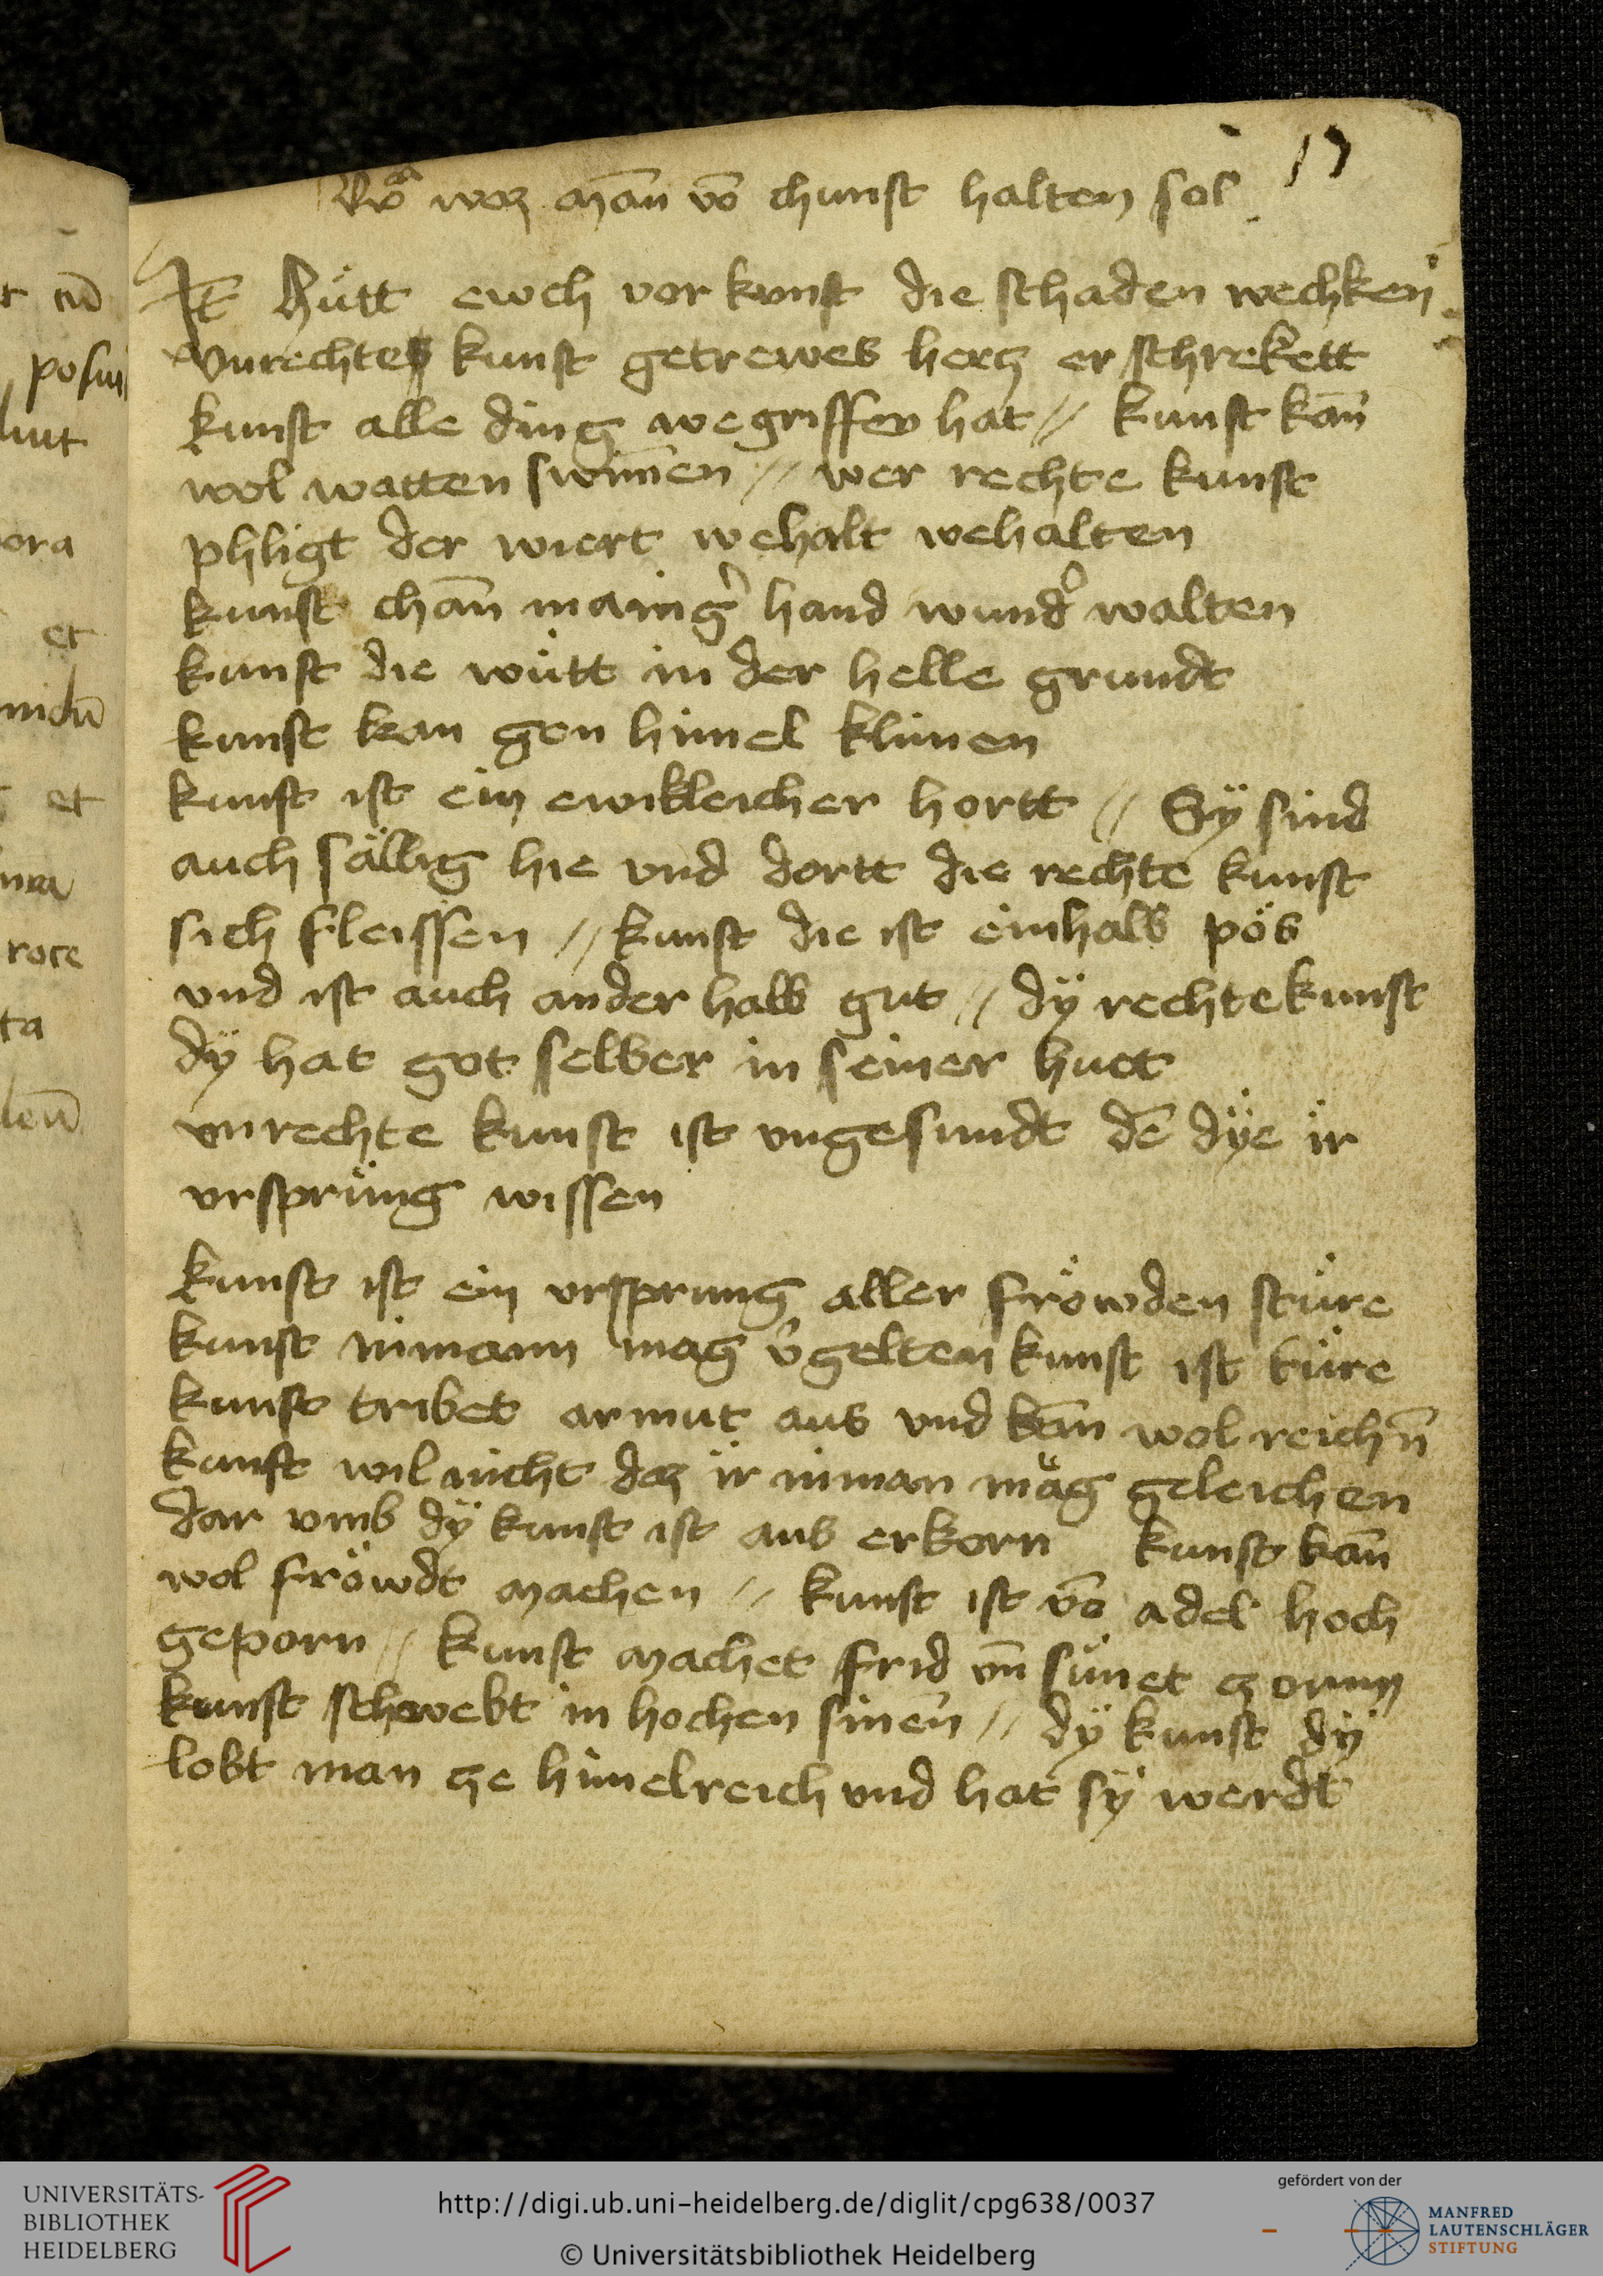 17
waz man võ chunst halten sol
It hütt ewch vor kunst die schaden wechken
Vnrechtes kunst getrewes hertz er schrekett
kunst alle ding wegriffen hat // kunst kan̄
wol watten swim̄en // wer rechte kunst
phligt der wiert wehalt wehalten
kunst chan̄ maing' hand wund' walten
kunst die wütt in der helle grundt
kunst kan gen himel klimen
kunst ist ein ewikleicher hortt // Sÿ sind
auch sällig hie vnd dortt die rechte kunst
sich fleissen // kunst die ist einhalb pös
vnd ist auch ander halb gut // dÿ rechte kunst
dÿ hat got selber in seiner huot
vnrechte kunst ist vngesundt dē dÿe ir
vrsprüng wissen
kunst ist ein vrsprung aller fröwden stüre
kunst nimann mag v'gelten kunst ist türe
kunst tribet armut aus vnd kan̄ wol reichn̄
kunst wil nicht daz ir niman mäg geleichen
dar vmb dÿ kunst ist aus erkorn kunst kan̄
wol fröwdt machen // kunst ist võ adel hoch
geporn // kunst machet frid vn̄ sünet zornn
kunst schwebt in hochen sinen̄ // dÿ kunst dÿ
lobt man ze himelreich vnd hat sÿ werdt
r cū
posui
et
ora
et
ra
rote
ta
UNIVERSITÄTS-
BIBLIOTHEK
HEIDELBERG
http://digi.ub.uni-heidelberg.de/diglit/cpg638/0037
© Universitätsbibliothek Heidelberg
gefördert von der
MANFRED
LAUTENSCHLÄGER
STIFTUNG